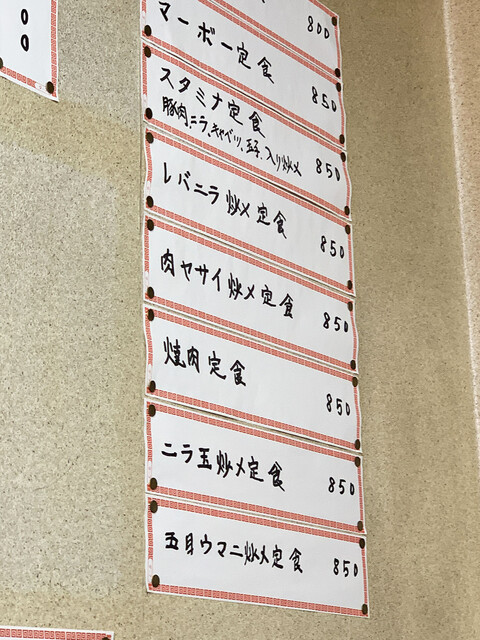 00
800
マーボー定食 850
スタミナ定食
豚肉、ニラ、キャベツ、玉子、入り炒メ 850
レバニラ炒メ定食 850
肉ヤサイ炒メ定食 850
焼肉定食 850
ニラ玉炒メ定食 850
五目ウマニ炒メ定食 850